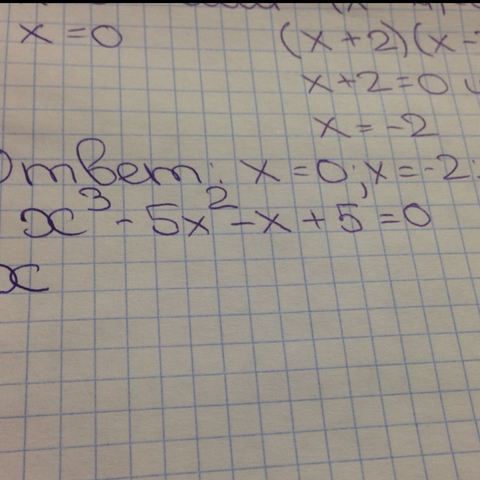 x = 0
(x + 2)(x -
x + 2 = 0
x = -2
Ответ: x = 0; x = -2;
x³ - 5x² - x + 5 = 0
x